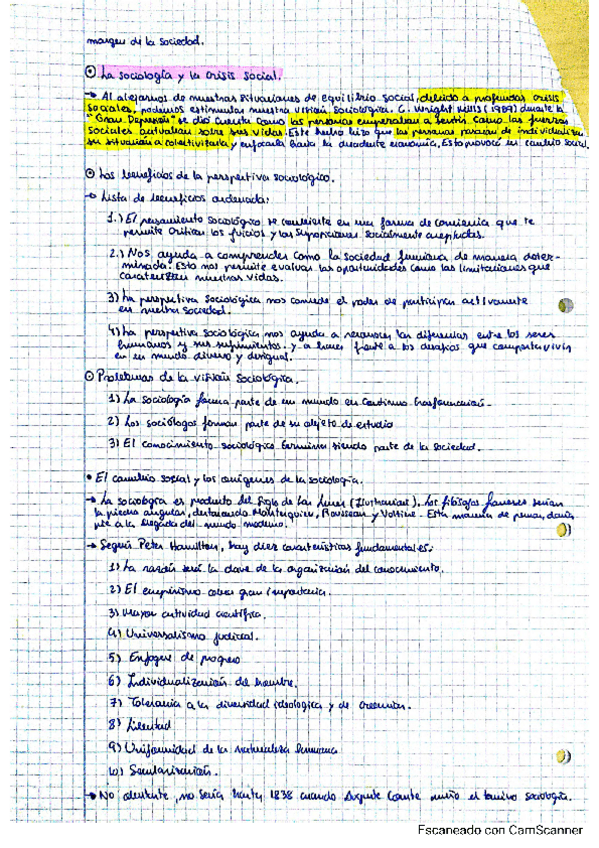 margen de la sociedad.
La sociología y la crisis social.
→ Al alejarnos de nuestras situaciones de equilibrio social, debido a profundas crisis
sociales, podemos estimular nuestra visión sociológica. C. Wright Mills (1959) durante la
"Gran Depresión" se dio cuenta como las personas empezaban a sentir como las fuerzas
sociales actuaban sobre sus vidas. Este hecho hizo que las personas pasaran de individualizar
su situación a colectivizarla y enfocarla hacia la decadente economía. Esto provocó un cambio social.
Los beneficios de la perspectiva sociológica.
→ Lista de beneficios ordenada:
1.) El pensamiento sociológico se convierte en una forma de conciencia que te
permite criticar los juicios y las suposiciones socialmente aceptadas.
2.) Nos ayuda a comprender como la sociedad funciona de manera deter-
minada. Esto nos permite evaluar las oportunidades como las limitaciones que
caracterizan nuestras vidas.
3) La perspectiva sociológica nos concede el poder de participar activamente
en nuestra sociedad.
4) La perspectiva sociológica nos ayuda a reconocer las diferencias entre los seres
humanos y sus sufrimientos. y a hacer frente a los desafíos que comporta vivir
en un mundo diverso y desigual.
Problemas de la visión sociológica.
1) La sociología forma parte de un mundo en continua transformación
2) Los sociólogos forman parte de su objeto de estudio
3) El conocimiento sociológico termina siendo parte de la sociedad.
• El cambio social y los orígenes de la sociología.
→ La sociología es producto del Siglo de las luces (Ilustración). Los filósofos serían
la piedra angular, destacando Montesquieu, Rousseau y Voltaire. Esta manera de pensar, daría
pie a la llegada del mundo moderno.
→ Según Peter Hamilton, hay diez características fundamentales:
1) La razón será la clave de la organización del conocimiento.
2) El empirismo cobra gran importancia.
3) Mayor actividad científica.
4) Universalismo judicial.
5) Enfoque de progreso
6) Individualización del hombre.
7) Tolerancia a la diversidad ideológica y de creencias.
8) Libertad
9) Uniformidad de la naturaleza humana
10) Secularización.
→ No obstante, no sería hasta 1838 cuando Auguste Comte acuñó el término sociología.
Escaneado con CamScanner